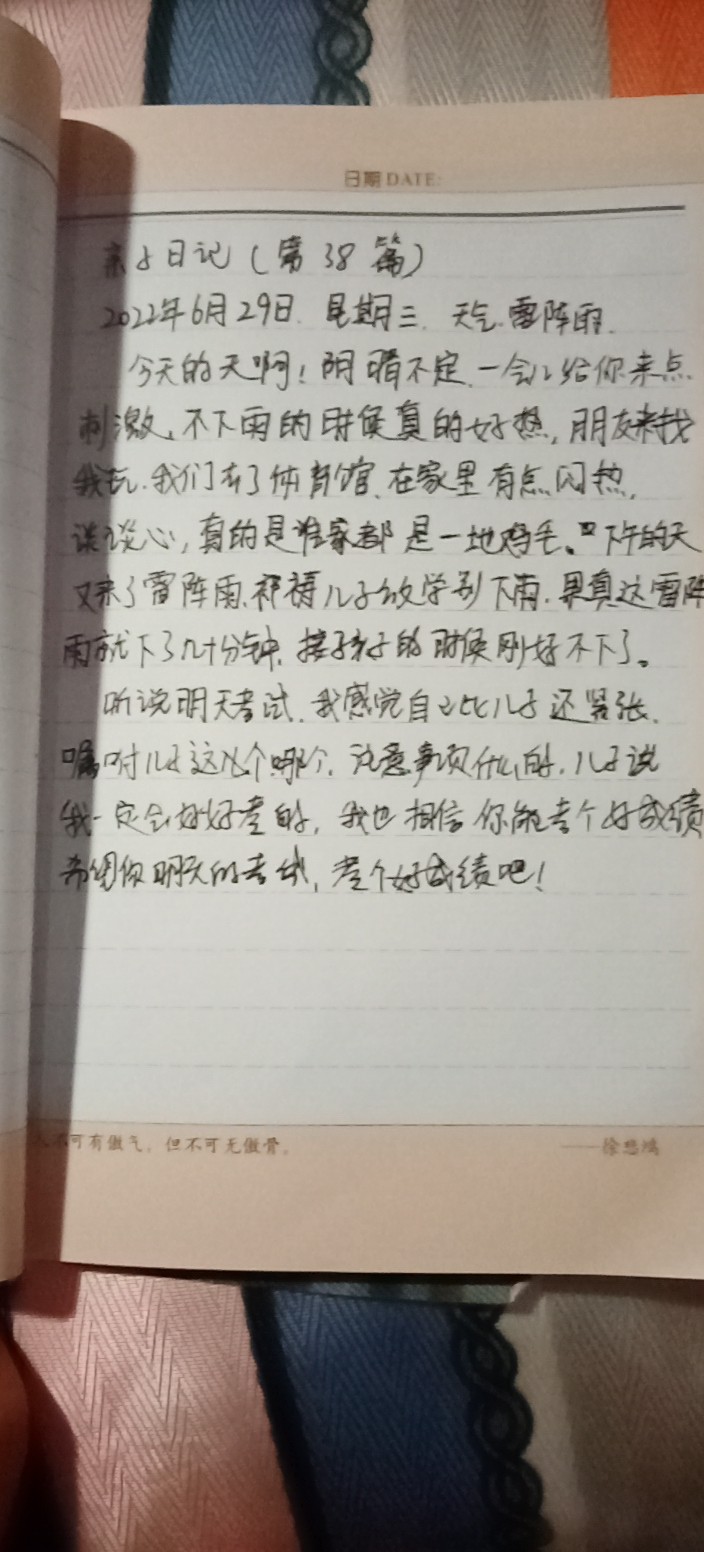 日期 DATE:
亲子日记(第38篇)
2022年6月29日. 星期三. 天气.雷阵雨.
今天的天啊!阴晴不定.一会儿给你来点
刺激,不下雨的时候真的好热,朋友来找
我玩.我们去了体育馆.在家里有点闷热,
谈谈心,真的是谁家都是一地鸡毛。下午的天
又来了雷阵雨.祈祷儿子放学别下雨.果真这雷阵
雨就下了几十分钟.接孩子的时候刚好不下了。
听说明天考试.我感觉自己比儿子还紧张.
嘱咐儿子这个那个.注意事项什么的.儿子说
我一定会好好考的,我也相信你能考个好成绩
希望你明天的考试,考个好成绩吧!
人不可有傲气,但不可无傲骨。
——徐悲鸿